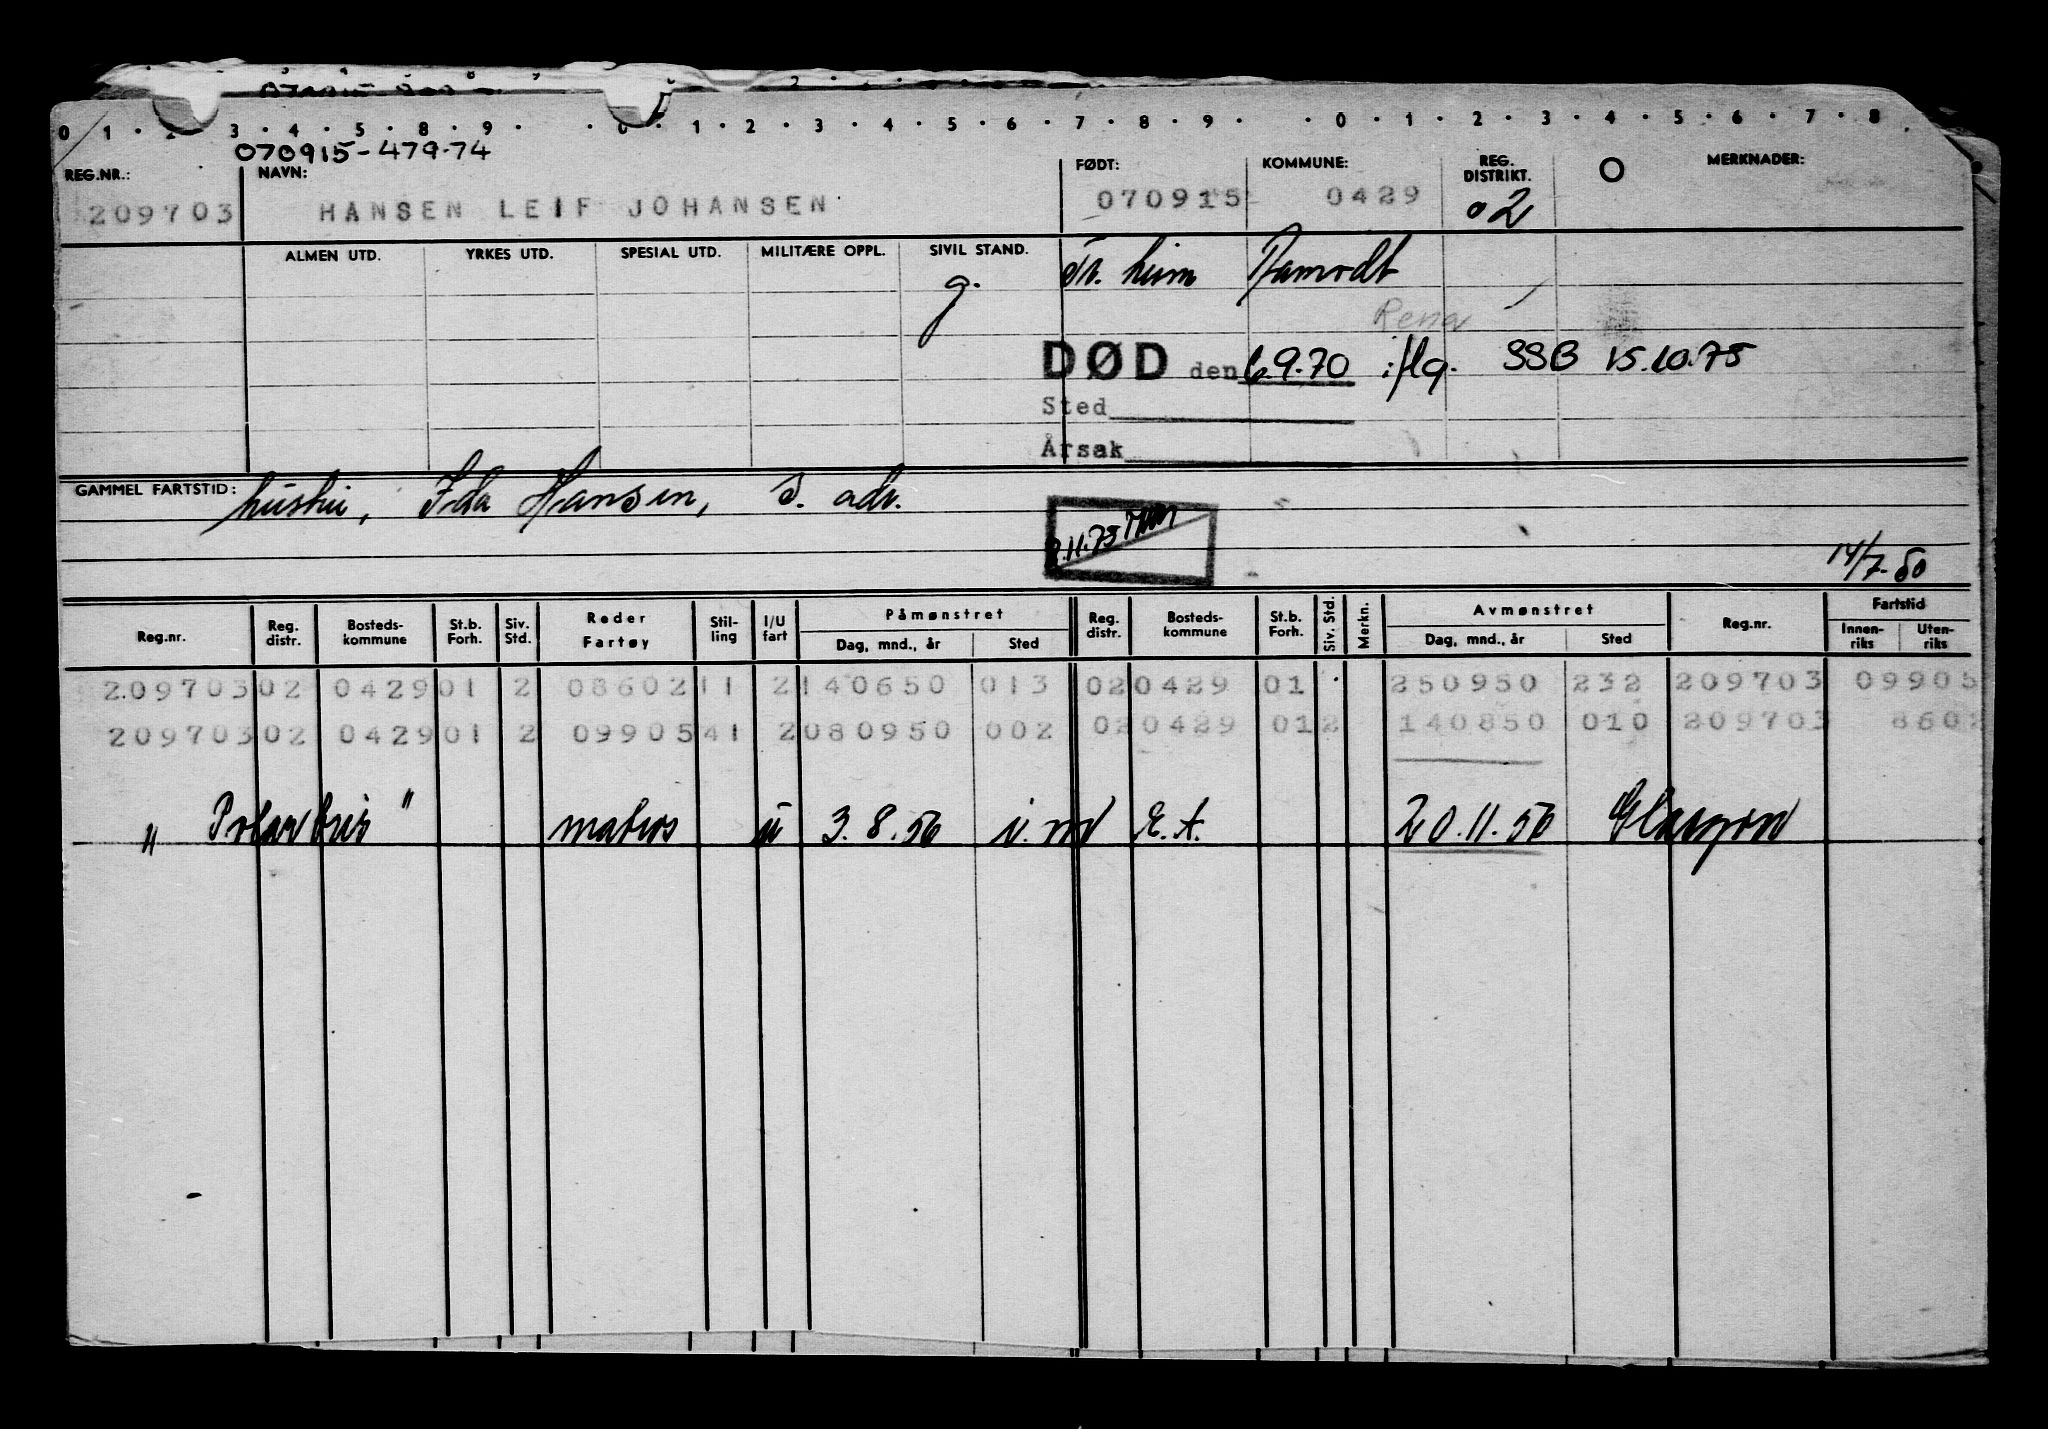 0 1 2 3 4 5 8 9 0 1 2 3 4 5 6 7 8 9 0 1 2 3 4 5 6 7 8
070915-479-74
REG.NR.: NAVN: FØDT: KOMMUNE: REG. DISTRIKT. MERKNADER:
209703 HANSEN LEIF JOHANSEN 070915 0429 02
ALMEN UTD. YRKES UTD. SPESIAL UTD. MILITÆRE OPPL. SIVIL STAND.
g.
Rena
DØD den 6.9.70 iflg. SSB 15.10.75
Sted
Årsak
GAMMEL FARTSTID: hustru, Ida Hansen, s. adr.
11.75
14/7-50
Reg.nr. Reg. distr. Bosteds-kommune St.b. Forh. Siv. Std. Reder Fartøy Stil-ling I/U fart Påmønstret Dag, mnd., år Sted Reg. distr. Bosteds-kommune St.b. Forh. Siv. Std. Merkn. Avmønstret Dag, mnd., år Sted Reg.nr. Fartstid Innen-riks Uten-riks
209703 02 0429 01 2 08602 11 2 140650 013 02 0429 01 250950 232 209703 09905
209703 02 0429 01 2 09905 41 2 080950 002 02 0429 01 2 140850 010 209703 8602
"Polarbris" matros u 3.8.56 E.A. 20.11.56 Glasgow